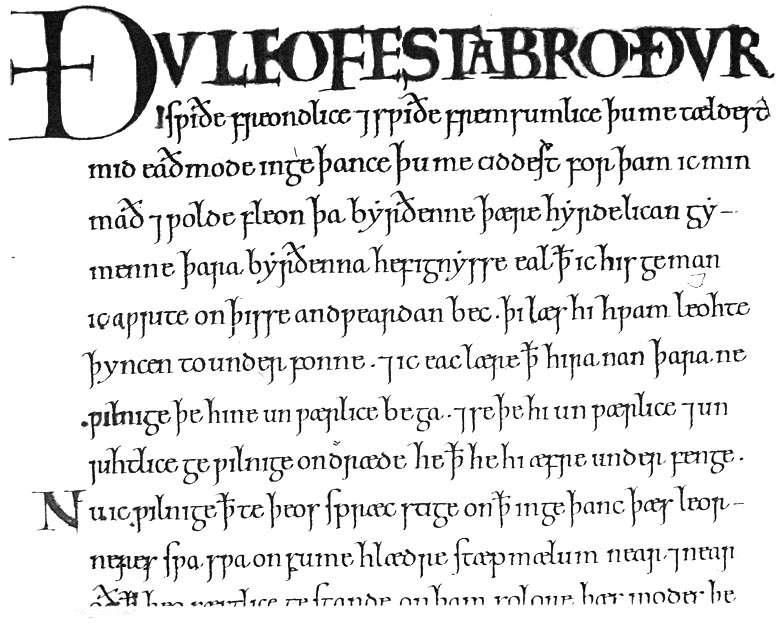 ÐU LEOFESTA BROÐUR
Isƿiðe freondlice ⁊ sƿiðe fremsumlice þu me tældesð
mid eaðmode ingeþance þu me ciddest forþam ic min
mað ⁊ ƿolde fleon þa byrðenne þære hyrdelican gy-
menne þara byrðenna hefignysse eal ꝥ ic his geman
ic aƿrite on þisse andƿeardan bec. þi læs hi hƿam leohte
þyncen to underfonne. ⁊ ic eac lære ꝥ hira nan þara ne
ƿilnige þe hine unƿærlice bega. ⁊ se þe hi unƿærlice ⁊ un
rihtlice geƿilnige ondræde he ꝥ he hi æfre underfenge.
Nu ic ƿilnige ꝥte þeos spræc stige on ꝥ ingeþanc þæs leor-
neres sƿa sƿa on sume hlædre stæpmælum near ⁊ near
oðꝥ heo fæstlice gestande on þam solore þæs modes þe